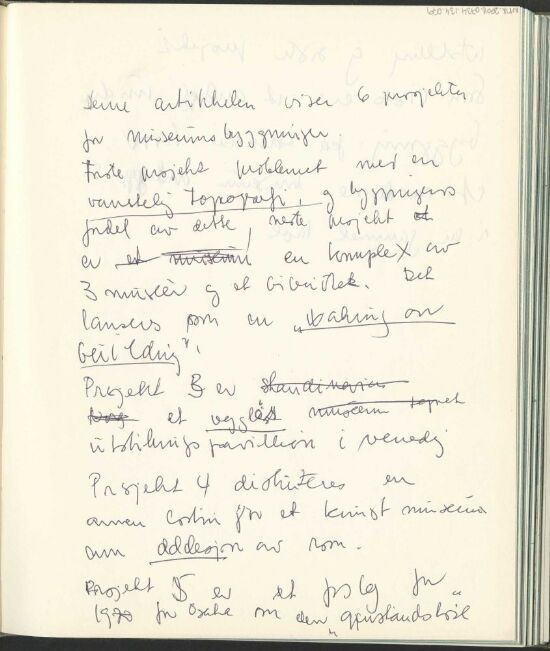 denne artikkelen viser 6 projekter
for museumsbygninger
Første projekt problemet med en
vanskelig topografi, og bygningens
fordel av dette, neste projekt et
er et museum en komplex av
3 museer og et bibliotek. Det
lanseres som en
Projekt 3 er skandinavias
et veggløst museum
utstillings pavillion i venedig
Projekt 4 diskuteres en
annen for et kunst museum
um addesjon av rom.
Projekt 5 er et forslag for
1970 for Osaka om den „